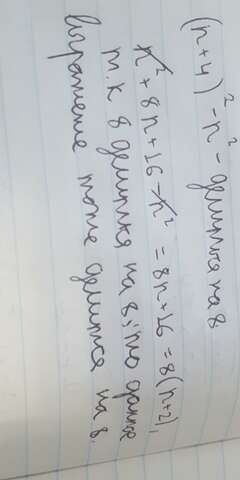 (n+4)² - n² - делится на 8
n² + 8n + 16 - n² = 8n + 16 = 8(n+2),
т.к 8 делится на 8, то данное
выражение тоже делится на 8.